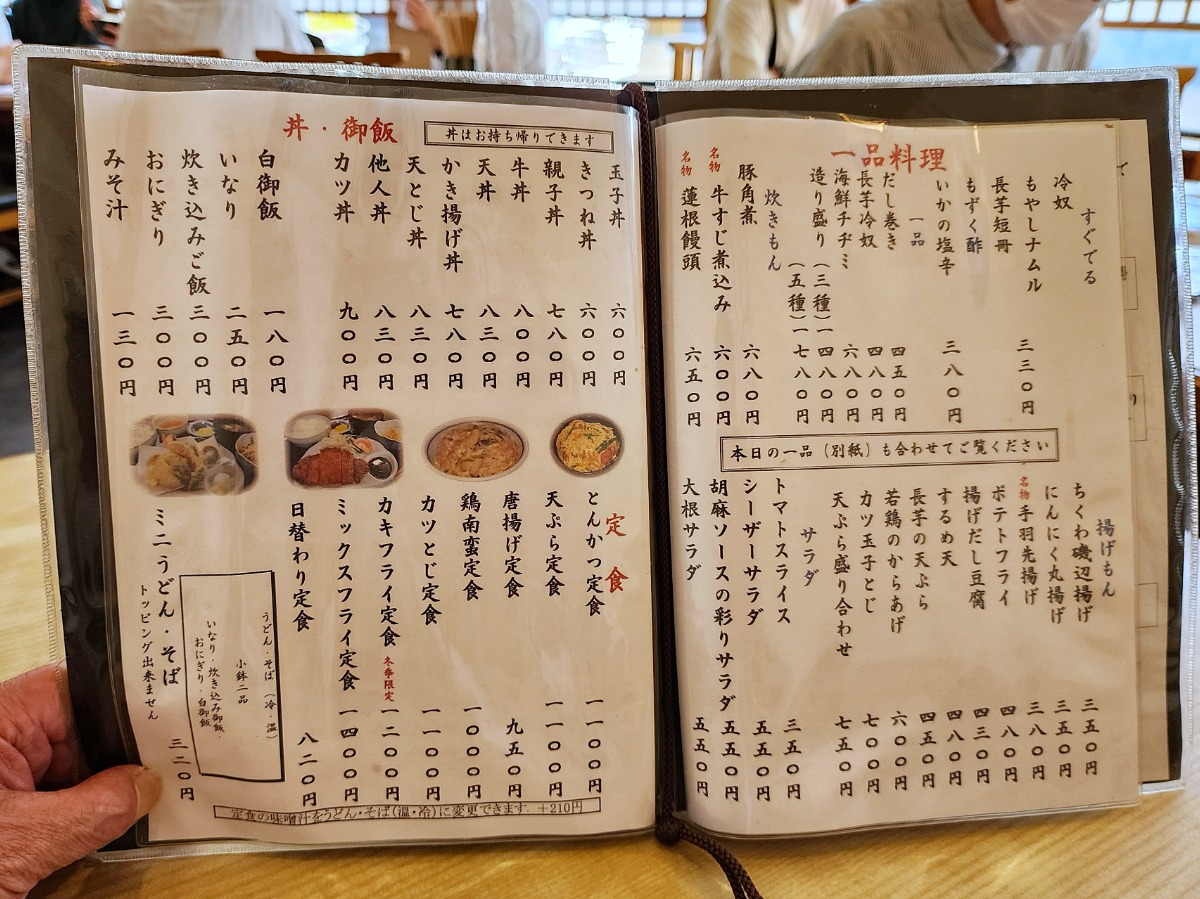 一品料理
すぐてる
冷奴
もやしナムル 三三〇円
長芋短冊
もずく酢
いかの塩辛 三八〇円
一品
だし巻き 四五〇円
長芋冷奴 四八〇円
海鮮チヂミ 六八〇円
造り盛り (三種)一四八〇円
(五種)一七八〇円
炊きもん
豚角煮 六八〇円
名物 牛すじ煮込み 六〇〇円
名物 蓮根饅頭 六五〇円
本日の一品(別紙)も合わせてご覧ください
揚げもん
ちくわ磯辺揚げ 三五〇円
にんにく丸揚げ 三五〇円
名物 手羽先揚げ 三八〇円
ポテトフライ 四八〇円
揚げだし豆腐 四三〇円
するめ天 四八〇円
長芋の天ぷら 四五〇円
若鶏のからあげ 六〇〇円
カツ玉子とじ 七〇〇円
天ぷら盛り合わせ 七五〇円
サラダ
トマトスライス 三五〇円
シーザーサラダ 五五〇円
胡麻ソースの彩りサラダ 五五〇円
大根サラダ 五五〇円
丼・御飯
丼はお持ち帰りできます
玉子丼 六〇〇円
きつね丼 六〇〇円
親子丼 七八〇円
牛丼 八〇〇円
天丼 八三〇円
かき揚げ丼 七八〇円
天とじ丼 八三〇円
他人丼 八三〇円
カツ丼 九〇〇円
白御飯 一八〇円
いなり 二五〇円
炊き込みご飯 三〇〇円
おにぎり 三〇〇円
みそ汁 一三〇円
定食
とんかつ定食 一一〇〇円
天ぷら定食 一一〇〇円
唐揚げ定食 九五〇円
鶏南蛮定食 一〇〇〇円
カツとじ定食 一一〇〇円
カキフライ定食 冬季限定 一二〇〇円
ミックスフライ定食 一四〇〇円
日替わり定食 八二〇円
うどん・そば(冷・温)
小鉢二品
いなり・炊き込み御飯・
おにぎり・白御飯
ミニうどん・そば 三二〇円
トッピング出来ません
定食の味噌汁をうどん・そば(温・冷)に変更できます。+210円